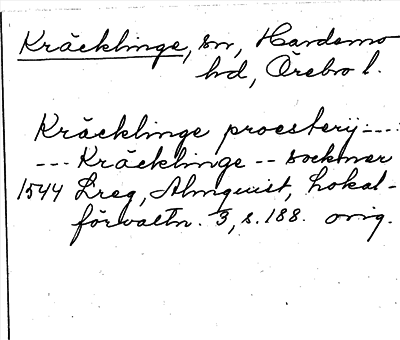 Kräcklinge, sn, Hardemo
hd, Örebro l.
Kräcklinge proesterij---
--- Kräcklinge -- sockner
1544 Lreg, Almquist, Lokal-
förvaltn. 3, s. 188. orig.